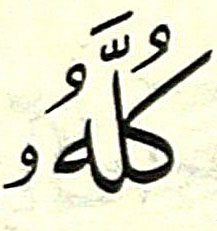 كُلَّهُۥ